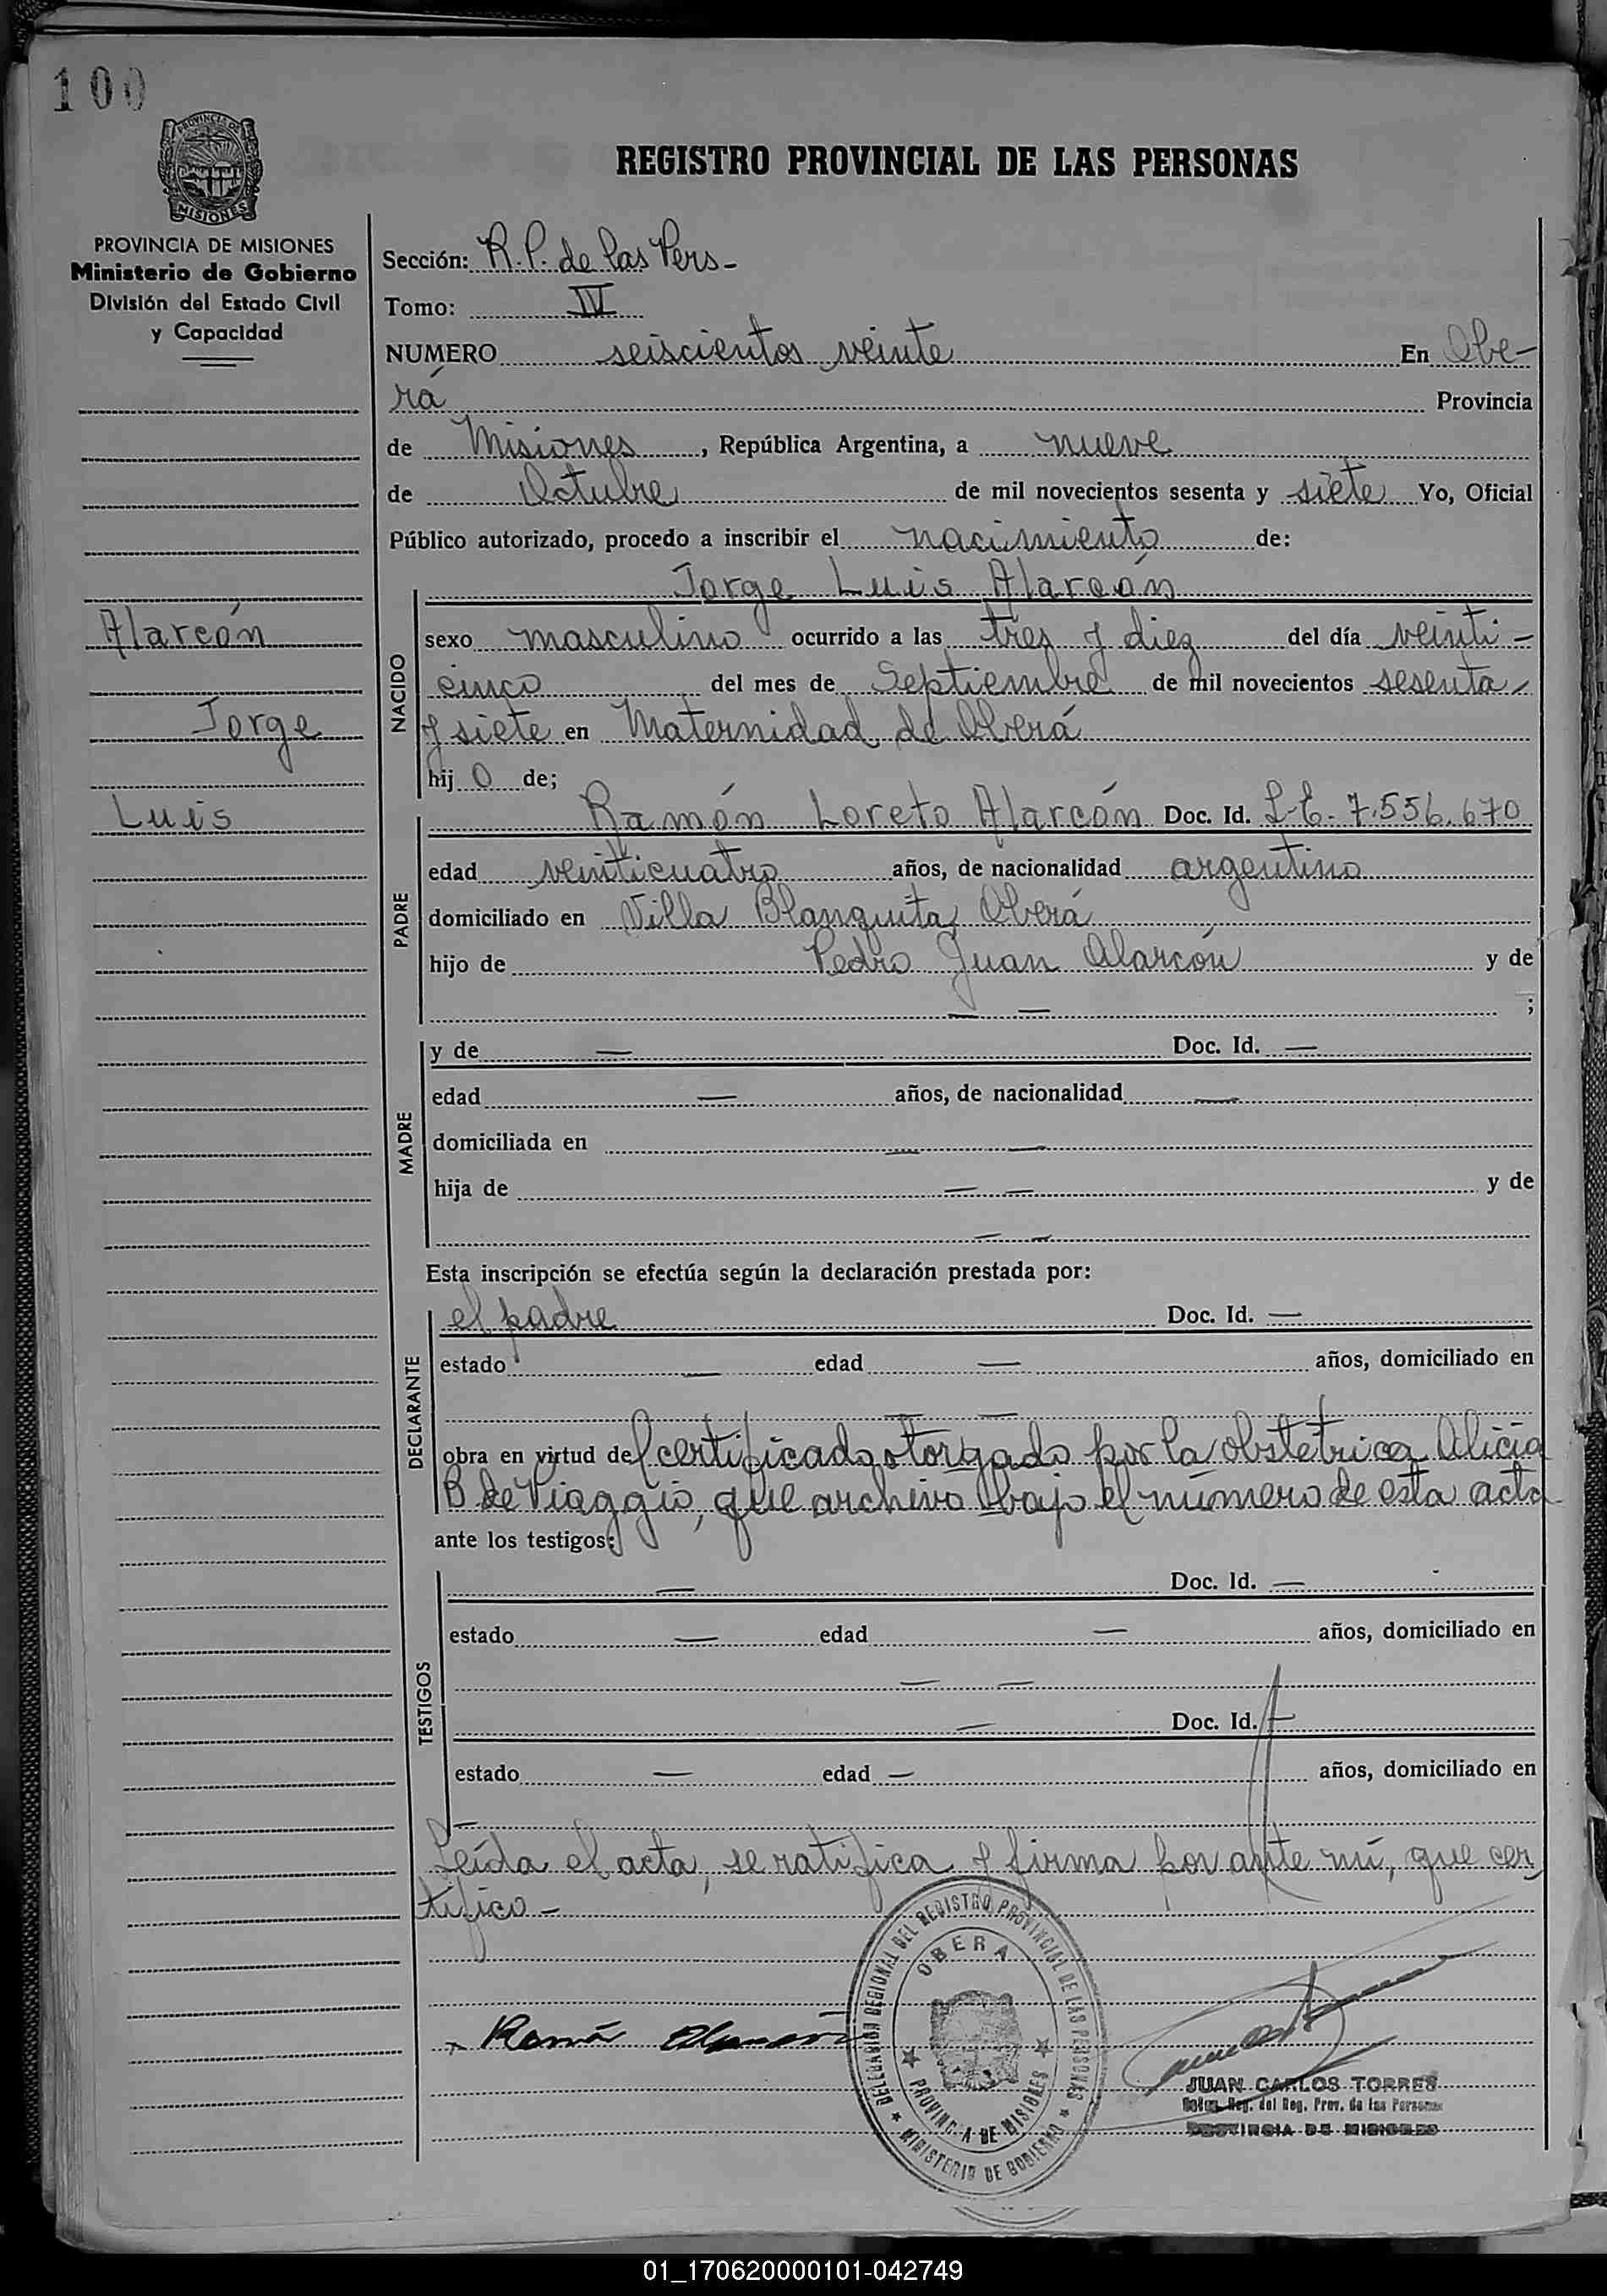 100
PROVINCIA DE
MISIONES
REGISTRO PROVINCIAL DE LAS PERSONAS
PROVINCIA DE MISIONES
Ministerio de Gobierno
División del Estado Civil
y Capacidad
Sección: R. P. de las Pers-
Tomo: IV
NUMERO seiscientos veinte En Obe-
rá Provincia
de Misiones, República Argentina, a nueve
de Octubre de mil novecientos sesenta y siete Yo, Oficial
Público autorizado, procedo a inscribir el nacimiento de:
Jorge Luis Alarcón
Alarcón
Jorge
Luis
NACIDO
sexo masculino ocurrido a las tres y diez del día veinti-
cinco del mes de Septiembre de mil novecientos sesenta
y siete en Maternidad de Oberá
hij o de;
PADRE
Ramón Loreto Alarcón Doc. Id. L.E. 7.556.670
edad veinticuatro años, de nacionalidad argentino
domiciliado en Villa Blanquita, Oberá
hijo de Pedro Juan Alarcón y de
— — ;
MADRE
y de — Doc. Id. —
edad — años, de nacionalidad —
domiciliada en — —
hija de — — y de
— —
Esta inscripción se efectúa según la declaración prestada por:
DECLARANTE
el padre Doc. Id. —
estado — edad — años, domiciliado en
— —
obra en virtud del certificado otorgado por la obstetrica Alicia
B de Viaggio, que archivo bajo el número de esta acta
ante los testigos:
TESTIGOS
— Doc. Id. —
estado — edad — años, domiciliado en
— —
— Doc. Id. —
estado — edad — años, domiciliado en
—
Leída el acta, se ratifica y firma por ante mí, que cer
tifico-
Ramón Alarcón
DELEGACION REGIONAL DEL REGISTRO PROVINCIAL DE LAS PERSONAS
OBERA
PROVINCIA DE MISIONES
MINISTERIO DE GOBIERNO
JUAN CARLOS TORRES
Reg. del Reg. Prov. de las Personas
PROVINCIA DE MISIONES
01_170620000101-042749